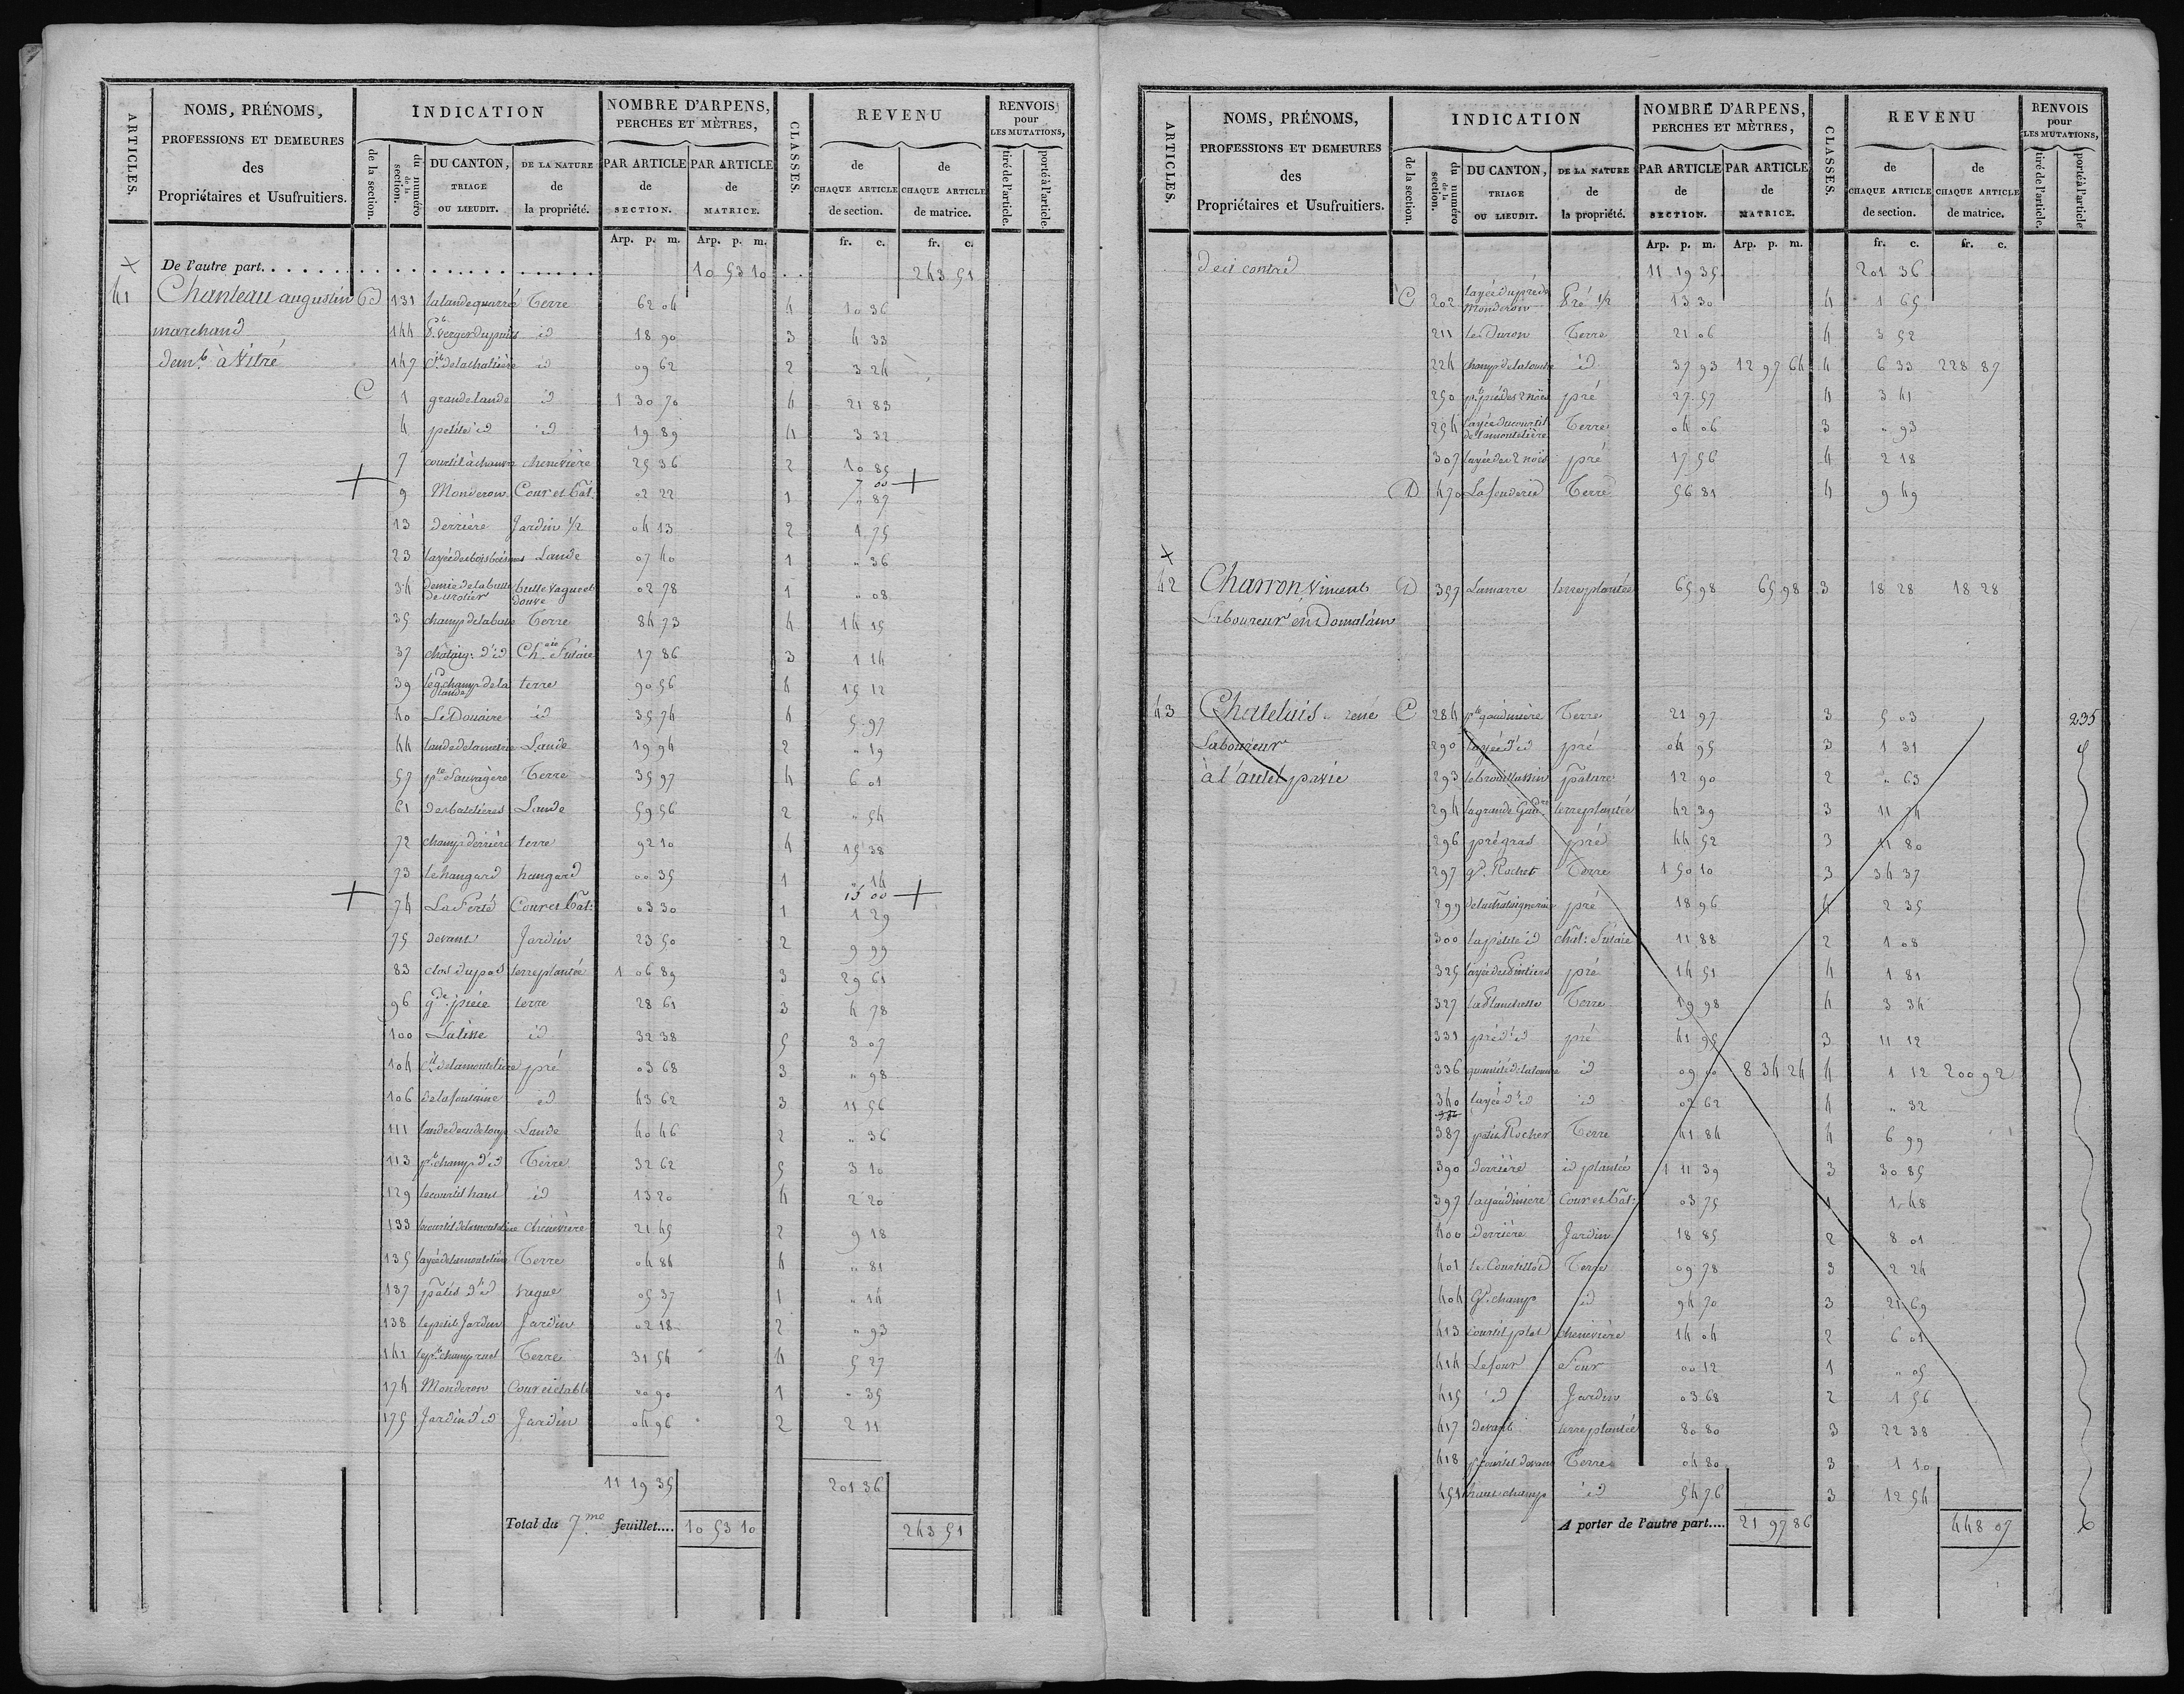 ARTICLES.
NOMS, PRÉNOMS,
PROFESSIONS ET DEMEURES
des
Propriétaires et Usufruitiers.
INDICATION
de la section.
du numéro de la section.
DU CANTON,
TRIAGE
OU LIEUDIT.
DE LA NATURE
de
la propriété.
NOMBRE D'ARPENS,
PERCHES ET MÈTRES,
PAR ARTICLE
de
SECTION.
PAR ARTICLE
de
MATRICE.
CLASSES.
REVENU
de
CHAQUE ARTICLE
de section.
de
CHAQUE ARTICLE
de matrice.
RENVOIS
pour
LES MUTATIONS,
tiré de l'article.
porté à l'article.
Arp. p. m. Arp. p. m. fr. c. fr. c.
De l'autre part. 10 53 10 243 51
41 Chanteau augustin 131 la lande quarré Terre 62 04 4 10 36
marchand 144 verger du puits id 18 90 3 4 33
dem.t à Vitré 147 id 09 62 2 3 24
C 1 grande lande id 1 30 70 4 21 83
4 petite id id 19 89 4 3 32
7 courtil à chanvre chenevière 25 36 2 10 85
9 Monderon Cour et Bât. 02 22 1 7 00 " 87
13 derrière Jardin 1/2 04 13 2 1 75
23 Lande 07 40 1 " 36
34 butte vague et douve 02 78 1 " 08
35 champ de la butte Terre 84 73 4 14 15
37 chataig. d'id Futaie 17 86 3 1 14
39 le g.d champ de la lande terre 90 56 4 15 12
40 Le Douaire id 35 74 4 5 97
44 lande de la metrie Lande 19 94 2 " 19
57 p.te Sauvagère Terre 35 97 4 6 01
61 Lande 59 56 2 " 54
72 champ derrière terre 92 10 4 15 38
73 le hangard hangard 00 35 1 " 14
74 La Ferté Cour et Bât: 03 30 1 15 00 1 29
75 devant Jardin 23 50 2 9 99
83 terre plantée 1 06 89 3 29 61
96 g.de pièce terre 28 61 3 4 78
100 id 32 38 5 3 07
104 pré 03 68 3 " 98
106 de la fontaine id 43 62 3 11 56
111 Lande 40 46 2 " 36
113 p.t champ d'id Terre 32 62 5 3 10
129 le courtil haut id 13 20 4 2 20
133 chenevière 21 45 2 9 18
135 Terre 04 84 4 " 81
137 pâtis d'id vague 05 37 1 " 14
138 le petit Jardin Jardin 02 18 2 " 93
141 Terre 31 54 4 5 27
174 Monderon Cour et etable 00 90 1 " 35
175 Jardin d'id Jardin 04 96 2 2 11
11 19 35 201 36
Total du 7.me feuillet.... 10 53 10 243 51
ARTICLES.
NOMS, PRÉNOMS,
PROFESSIONS ET DEMEURES
des
Propriétaires et Usufruitiers.
INDICATION
de la section.
du numéro de la section.
DU CANTON,
TRIAGE
OU LIEUDIT.
DE LA NATURE
de
la propriété.
NOMBRE D'ARPENS,
PERCHES ET MÈTRES,
PAR ARTICLE
de
SECTION.
PAR ARTICLE
de
MATRICE.
CLASSES.
REVENU
de
CHAQUE ARTICLE
de section.
de
CHAQUE ARTICLE
de matrice.
RENVOIS
pour
LES MUTATIONS,
tiré de l'article.
porté à l'article
Arp. p. m. Arp. p. m. fr. c. fr. c.
deci contre 11 19 35 201 36
C 202 layée du pré de Monderon Pré 1/2 13 30 4 1 65
211 Terre 21 06 4 3 52
224 champ de la touche id 37 93 12 97 64 4 6 33 228 87
250 pré 27 57 4 3 41
254 layée du courtil de la moutelière Terre 04 06 3 " 93
307 layée des 2 noës pré 17 56 4 2 18
D 470 Terre 56 81 4 9 49
42 Charron Vincent D 357 Lamarre terre plantée 65 98 65 98 3 18 28 18 28
Laboureur en Domalain
43 Chatelais rené C 284 p.te gaudinière Terre 21 97 3 5 03 235
Laboureur 290 layée d'id pré 04 95 3 1 31
293 pâture 12 90 2 " 63
294 la grande Gaud.re terre plantée 42 39 3 11 74
296 pré gras pré 44 52 3 11 80
297 g.d Rocher Terre 1 50 10 3 34 37
299 de la chataigneraie pré 18 96 4 2 35
300 la petite id chât: Futaie 11 88 2 1 08
325 pré 14 51 4 1 81
327 la Planchette Terre 19 98 4 3 34
331 pré d'id pré 41 95 3 11 12
336 id 09 00 8 34 24 4 1 12 200 92
340 layée d'id id 02 62 4 " 32
387 petit Rocher Terre 41 84 4 6 99
390 derrière id plantée 1 11 39 3 30 85
397 la gaudinière Cour et Bât: 03 75 1 1 48
400 derrière Jardin 18 85 2 8 01
401 Le Courtillot Terre 09 78 3 2 24
404 G.d champ id 94 70 3 21 69
413 courtil plat chenevière 14 04 2 6 01
414 Le four Four 00 12 1 " 05
415 id Jardin 03 68 2 1 56
417 devant terre plantée 80 80 3 22 38
418 p. courtil devant Terre 04 80 3 1 10
451 haut champ id 54 76 3 12 54
A porter de l'autre part.... 21 97 86 448 07